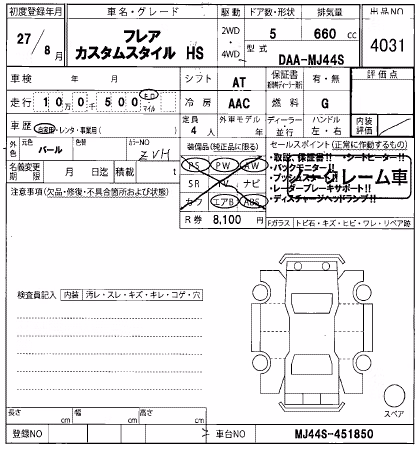 初度登録年月 車名・グレード 駆動 ドア数・形状 排気量 出品NO
27/8月 フレア カスタムスタイル HS 2WD・4WD 5 660 cc 4031
型式 DAA-MJ44S
車検 年 月 シフト AT 保証書 有・無 評価点
走行 10万0500 キロ マイル 冷房 AAC 燃料 G
車歴 自家用・レンタ・事業用( ) 定員 4人 外車モデル 年 ディーラー 並行 ハンドル 左・右 内装評価
外色 元色 パール 色替 カラーNO ZVH
装備品(純正品に限る) セールスポイント(正常に作動するもの)
PS PW AW
SR TV ナビ
カワ エアB ABS
・取説、保証書!! ・シートヒーター!!
・バックモニター!!
・プッシュスタート!!
・レーダーブレーキサポート!!
・ディスチャージヘッドランプ!!
クレーム車
名義変更期限 月 日迄 積載 t
R券 8,100 円
注意事項(欠品・修復・不具合箇所および状態)
Fガラス トビ石・キズ・ヒビ・ワレ・リペア跡
検査員記入 内装 汚レ・スレ・キズ・キレ・コゲ・穴
スペア
長さ cm 幅 cm 高さ cm
登録NO 車台NO MJ44S-451850